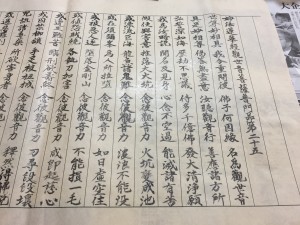 妙法蓮華經觀世音菩薩普門品第二十五
世尊妙相具 我今重問彼 佛子何因緣 名為觀世音
具足妙相尊 偈答無盡意 汝聽觀音行 善應諸方所
弘誓深如海 歷劫不思議 侍多千億佛 發大清淨願
我為汝略說 聞名及見身 心念不空過 能滅諸有苦
假使興害意 推落大火坑 念彼觀音力 火坑變成池
或漂流巨海 龍魚諸鬼難 念彼觀音力 波浪不能沒
或在須彌峯 為人所推墮 念彼觀音力 如日虛空住
或被惡人逐 墮落金剛山 念彼觀音力 不能損一毛
或值怨賊繞 各執刀加害 念彼觀音力 咸即起慈心
或遭王難苦 臨刑欲壽終 念彼觀音力 刀尋段段壞
或囚禁枷鎖 手足被杻械 念彼觀音力 釋然得解脫
呪詛諸毒藥 所欲害身者 念彼觀音力
大企